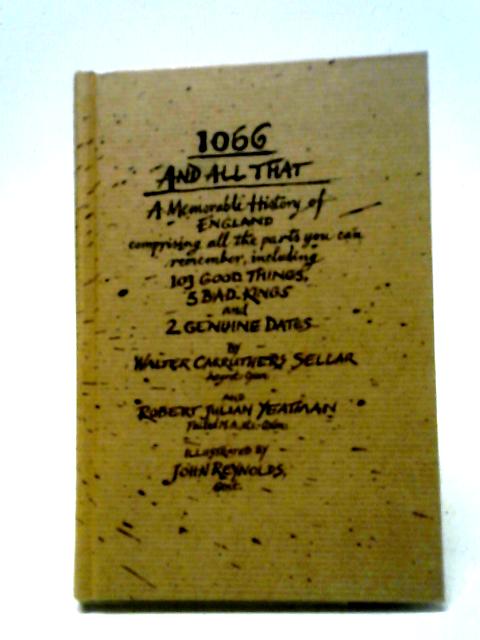 1066
AND ALL THAT
A Memorable History of
ENGLAND
comprising all the parts you can
remember, including
103 GOOD THINGS,
5 BAD KINGS
and
2 GENUINE DATES
by
WALTER CARRUTHERS SELLAR
AND
ROBERT JULIAN YEATMAN
ILLUSTRATED BY
JOHN REYNOLDS,